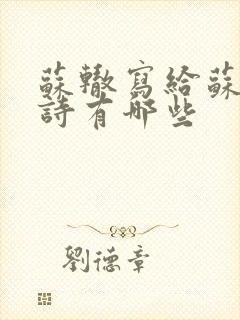 蘇轍寫給蘇
詩有哪些
劉德章